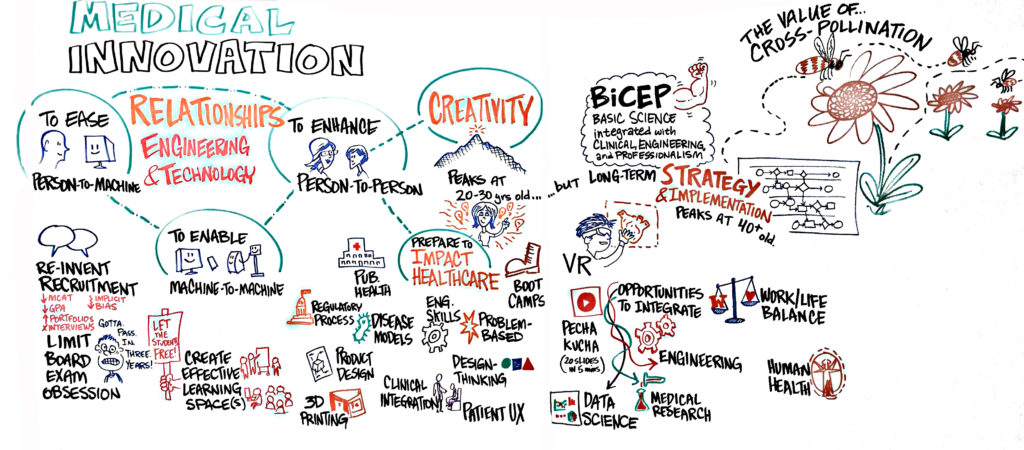 MEDICAL
INNOVATION
TO EASE
PERSON-TO-MACHINE
RELATIONSHIPS
ENGINEERING
& TECHNOLOGY
TO ENHANCE
PERSON-TO-PERSON
TO ENABLE
MACHINE-TO-MACHINE
CREATIVITY
PEAKS AT
20-30 yrs old...
...BUT
BiCEP
BASIC SCIENCE
integrated with
CLINICAL, ENGINEERING,
and PROFESSIONALISM
LONG-TERM
STRATEGY
& IMPLEMENTATION
PEAKS AT 40+
old.
THE VALUE OF...
CROSS-POLLINATION
RE-INVENT
RECRUITMENT
↓MCAT
↓GPA
↑PORTFOLIOS
INTERVIEWS
↓IMPLICIT
BIAS
LIMIT
BOARD
EXAM
OBSESSION
GOTTA.
PASS.
IN.
THREE.
YEARS!
LET
THE
STUDENTS
FREE!
CREATE
EFFECTIVE
LEARNING
SPACE(S)
PREPARE TO
IMPACT
HEALTHCARE
PUB.
HEALTH
REGULATORY
PROCESS
DISEASE
MODELS
ENG.
SKILLS
BOOT
CAMPS
PROBLEM-
BASED
PRODUCT
DESIGN
3D
PRINTING
CLINICAL
INTEGRATION
DESIGN-
THINKING
PATIENT UX
VR
PECHA
KUCHA
(20 SLIDES
IN 5 mins)
OPPORTUNITIES
TO INTEGRATE
ENGINEERING
MEDICAL
RESEARCH
DATA
SCIENCE
W
L
WORK/LIFE
BALANCE
HUMAN
HEALTH